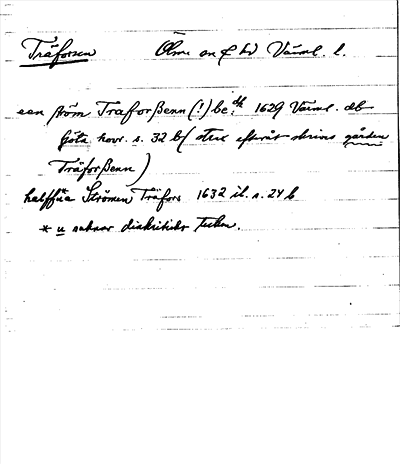 Träforsen Ölme sn o hd Värml. l.
een ström Traforßenn (!) be:dh 1629 Värml. db
Göta hovr. s. 32 b ( strax efteråt skrivs gården
Träforßenn )
halffua* Strömen Träfors 1632 ib. s. 24 b
* u saknar diakritiskt tecken.